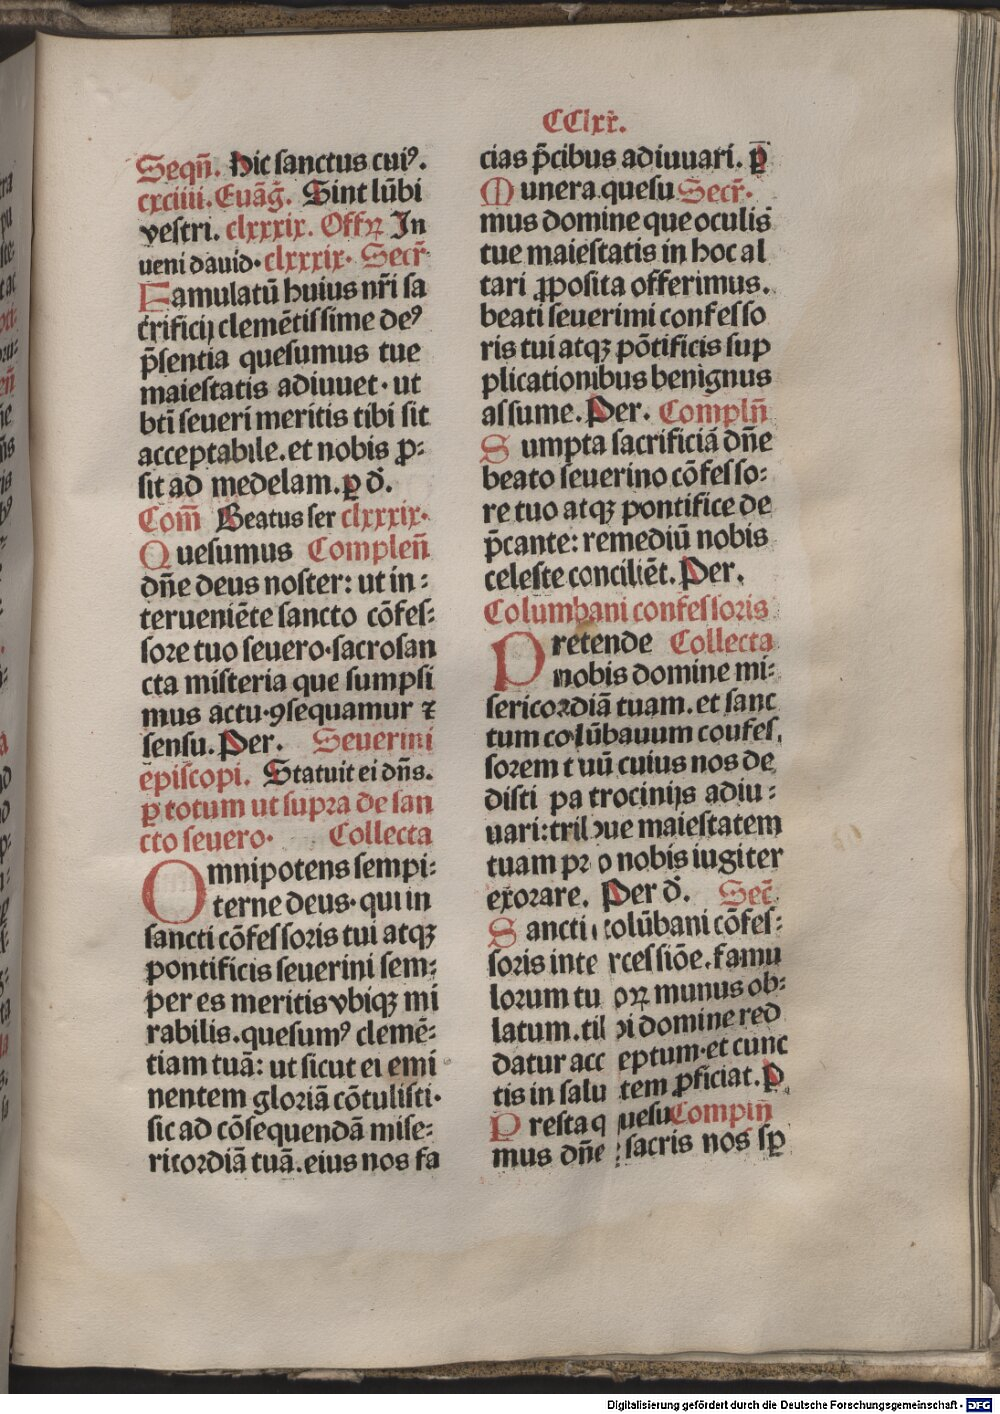 CClxx.
Seqn̄. Hic sanctus cuiꝰ.
cxciiii. Euāḡ. Sint lūbi
vestri. clxxxix. Offꝝ In
ueni dauid. clxxxix. Secr̄
Famulatū huius nr̄i sa
crificij clemētissime deꝰ
p̄sentia quesumus tue
maiestatis adiuuet. ut
bti̅ seueri meritis tibi sit
acceptabile. et nobis ꝓ-
sit ad medelam. ꝑ d̄.
Com̄ Beatus ser clxxxix.
Quesumus Complen̄
dn̄e deus noster: ut in-
terueniēte sancto cōfes-
sore tuo seuero. sacrosan
cta misteria que sumpsi
mus actu. ꝯsequamur ⁊
sensu. Per. Seuerini
episcopi. Statuit ei dn̄s.
ꝑ totum ut supra de san
cto seuero. Collecta
Omnipotens sempi-
terne deus. qui in
sancti cōfessoris tui atqꝫ
pontificis seuerini sem-
per es meritis vbiqꝫ mi
rabilis. quesumꝰ clemē-
tiam tuā: ut sicut ei emi
nentem gloriā cōtulisti.
sic ad cōsequendā mise-
ricordiā tuā. eius nos fa
cias p̄cibus adiuuari. ꝑ
Munera quesu Secr̄.
mus domine que oculis
tue maiestatis in hoc al
tari ꝓposita offerimus.
beati seuerimi confesso
ris tui atqꝫ pōtificis sup
plicationibus benignus
assume. Per. Compln̄
Sumpta sacrificiā dn̄e
beato seuerino cōfesso-
re tuo atqꝫ pontifice de
p̄cante: remediū nobis
celeste conciliēt. Per.
Columbani confessoris
Pretende Collecta
nobis domine mi-
sericordiā tuam. et sanc
tum colūbauum confes
sorem tuū cuius nos de
disti patrocinijs adiu-
uari: tribue maiestatem
tuam pro nobis iugiter
exorare. Per d̄. Sec̄
Sancti colūbani cōfes-
soris intercessiōe. famu
lorum tuoꝝ munus ob-
latum. tibi domine red
datur acceptum. et cunc
tis in salutem ꝓficiat. P
Presta quesu Compln̄
mus dn̄e sacris nos sꝑ
Digitalisierung gefördert durch die Deutsche Forschungsgemeinschaft - DFG